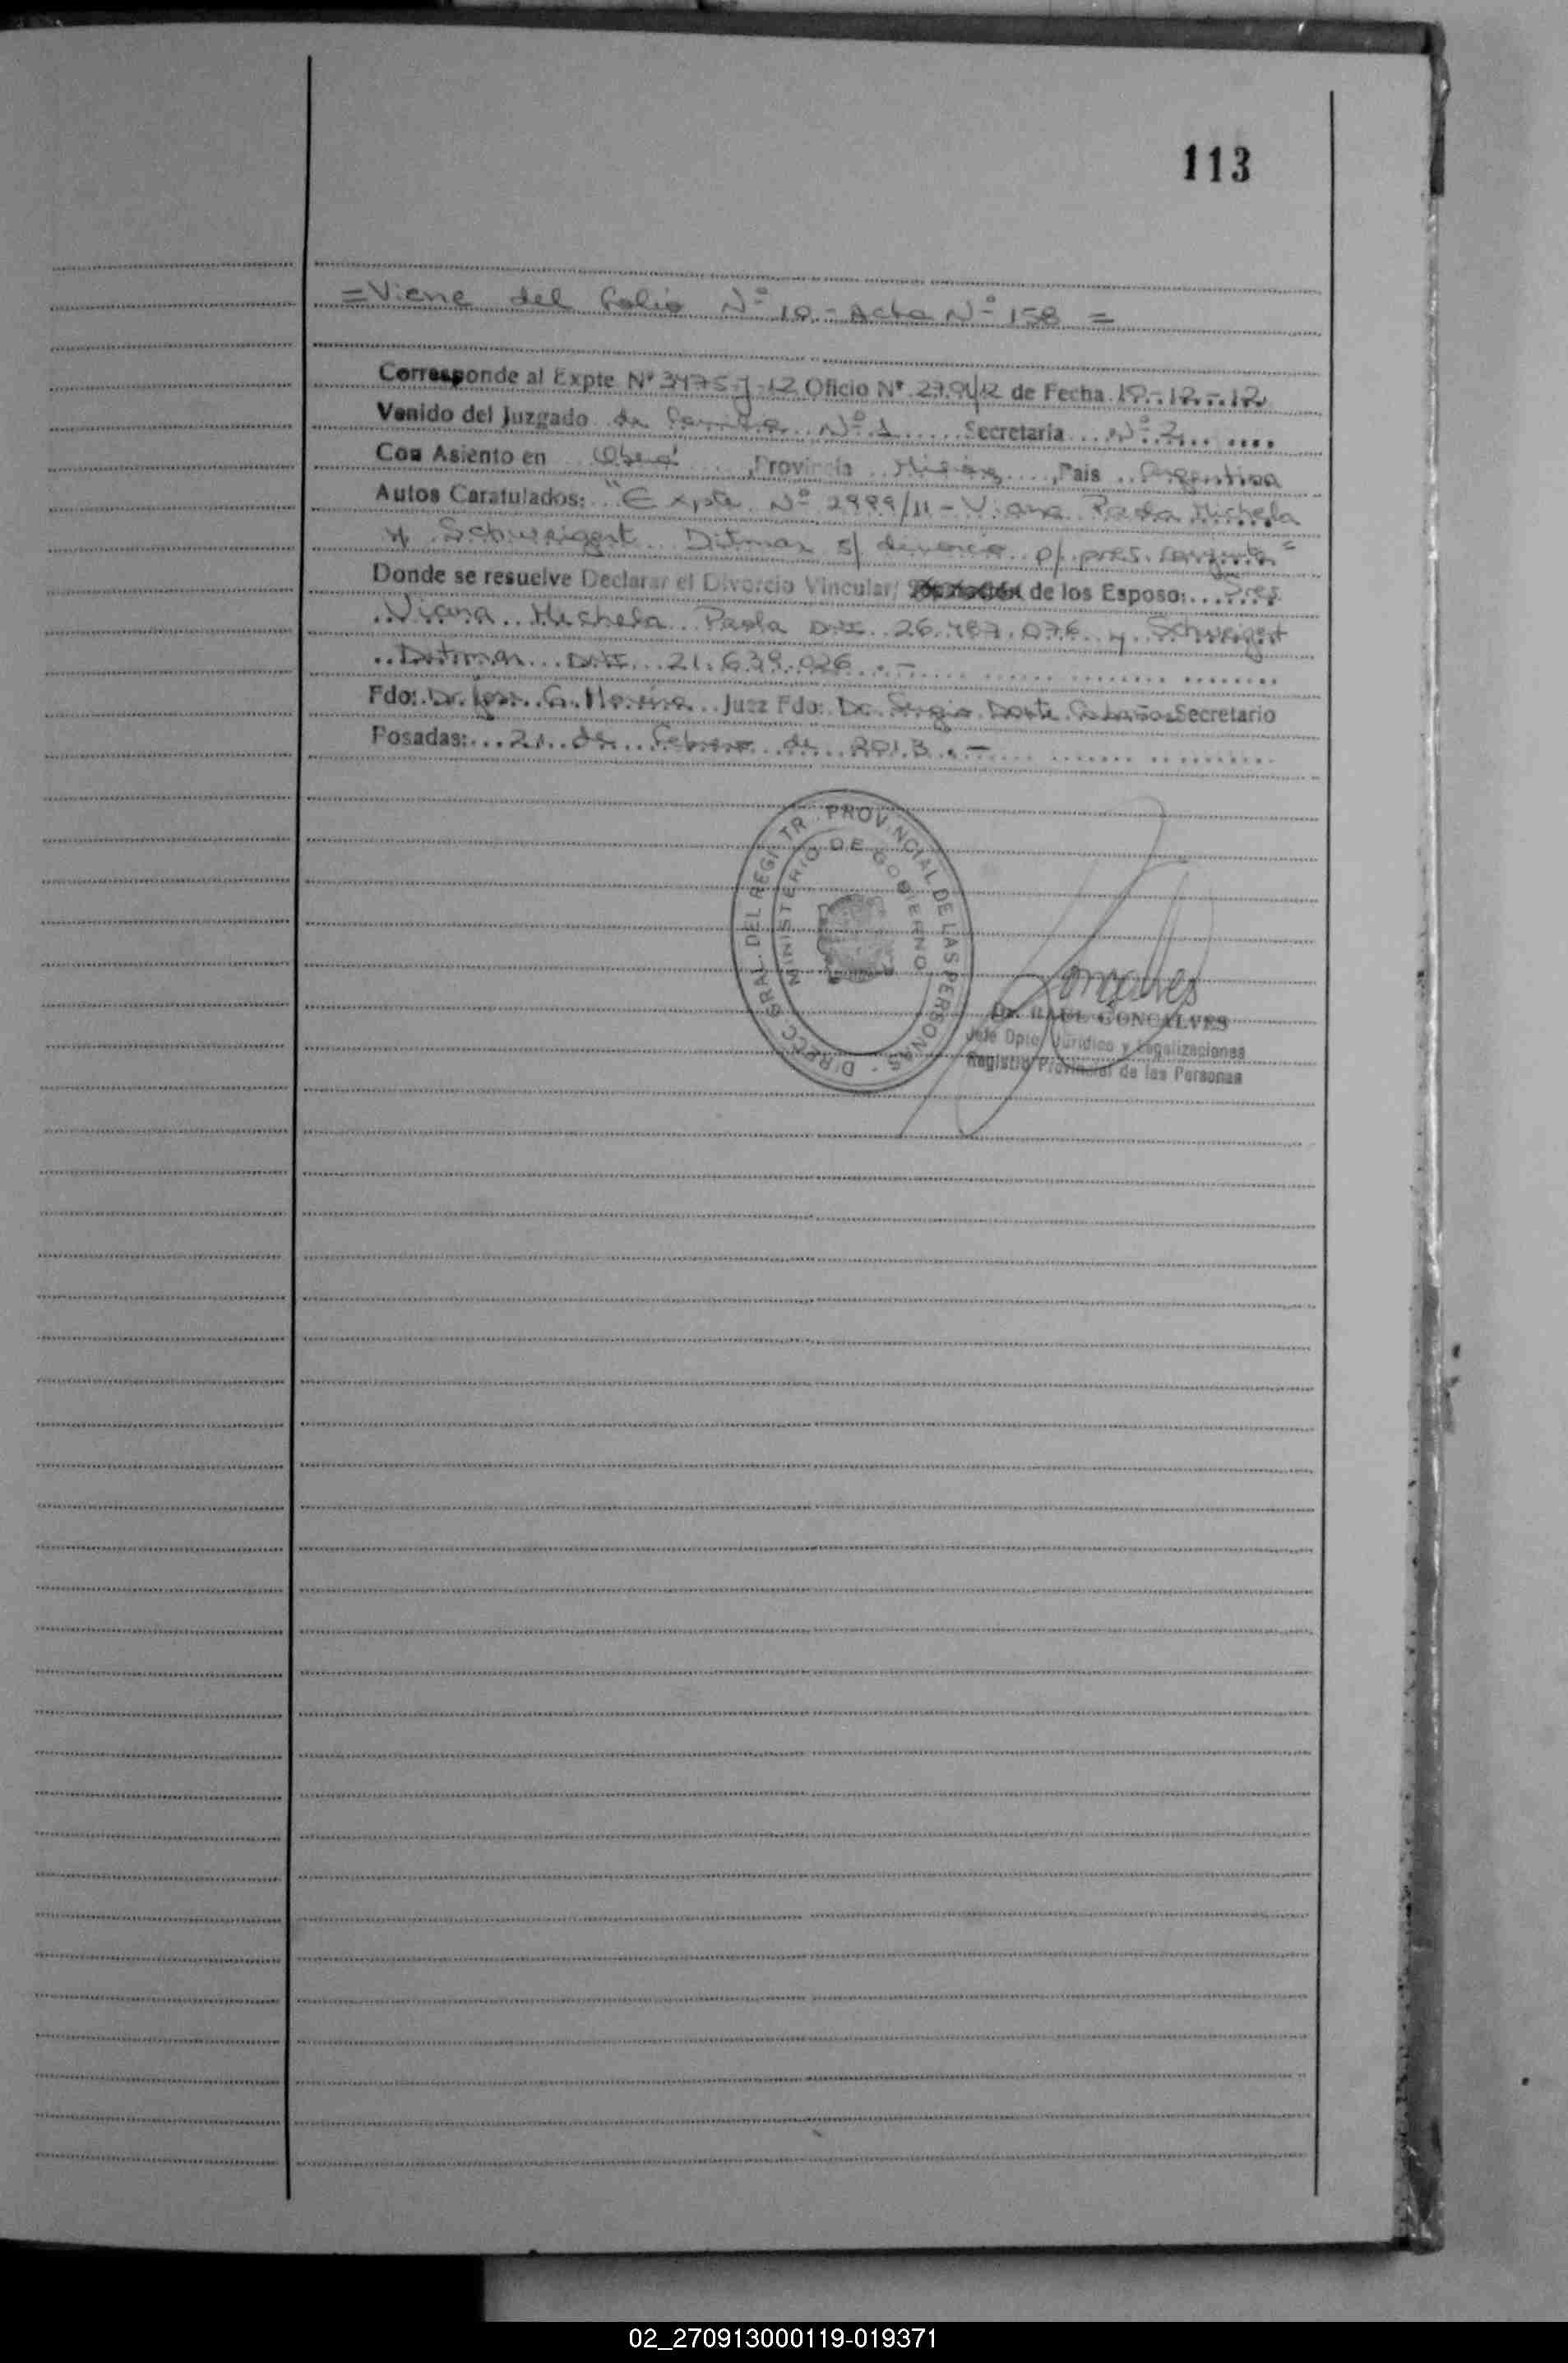 113
=Viene del folio Nº 10.- Acta Nº 158 =
Corresponde al Expte Nº 3475-J-12 Oficio Nº 2791/12 de Fecha 19.-12.-12
Venido del Juzgado de Familia Nº 1 Secretaria Nº 2
Con Asiento en Oberá, Provincia Misiones, Pais Argentina
Autos Caratulados: "Expte Nº 2999/11 - Viana Paola Michela
y Schweigert Ditmar s/ divorcio p/ pres. conjunta"
Donde se resuelve Declarar el Divorcio Vincular/ de los Esposo: Sres
Viana Michela Paola DNI 26.487.076 y Schweigert
Ditmar DNI 21.639.026.-
Fdo: Dr. Jose G. Moreira Juez Fdo: Dr. Sergio Dante Secretario
Posadas: 21 de Febrero de 2013.-
DIRECC GRAL. DEL REGISTR. PROVINCIAL DE LAS PERSONAS -
MINISTERIO DE GOBIERNO
Goncalves
Dr. RAUL GONCALVES
Jefe Dpto. Jurídico y Legalizaciones
Registro Provincial de las Personas
02_270913000119-019371